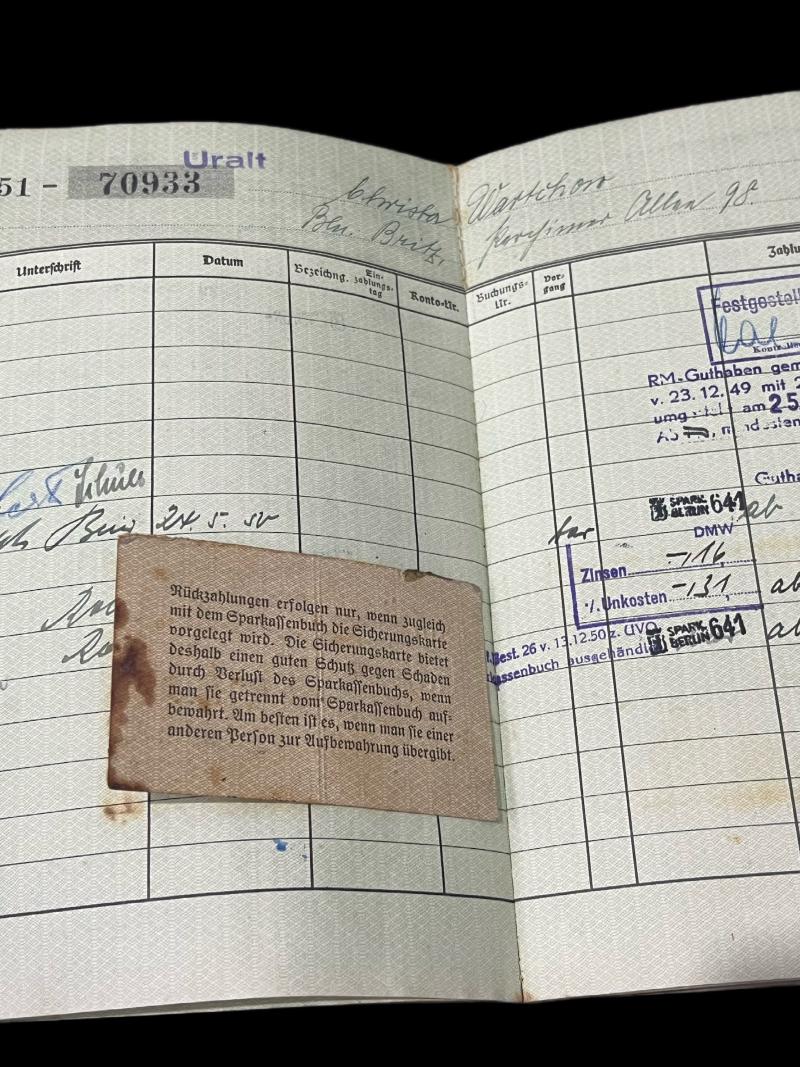 Uralt
51 - 70933
Christa Wartchow
Bln. Britz, Parchimer Allee 98.
Unterschrift
Datum
Bezeichng.
Ein-
zahlungs-
tag
Konto-Nr.
Buchungs-
Nr.
Vor-
gang
Zahlu
Festgestell
RM-Guthaben gem
v. 23.12.49 mit
am 25
Gutha
24. 5. 50
SPARK
BERLIN 641
ab
DMW
Zinsen -,16
./. Unkosten -,31
ab
SPARK
BERLIN 641
ab
Best. 26 v. 13.12.50 z. UVO
kassenbuch ausgehändi
Rückzahlungen erfolgen nur, wenn zugleich
mit dem Sparkassenbuch die Sicherungskarte
vorgelegt wird. Die Sicherungskarte bietet
deshalb einen guten Schutz gegen Schaden
durch Verlust des Sparkassenbuchs, wenn
man sie getrennt vom Sparkassenbuch auf-
bewahrt. Am besten ist es, wenn man sie einer
anderen Person zur Aufbewahrung übergibt.